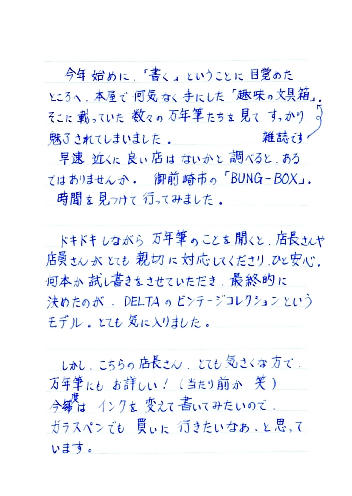 今年始めに、「書く」ということに目覚めた
ところへ、本屋で何気なく手にした「趣味の文具箱」。
そこに載っていた数々の万年筆たちを見てすっかり
魅了されてしまいました。
雑誌です
早速近くに良い店はないかと調べると、ある
ではありませんか。御前崎市の「BUNG-BOX」。
時間を見つけて行ってみました。
ドキドキしながら万年筆のことを聞くと、店長さんや
店員さんがとても親切に対応してくださり、ひと安心。
何本か試し書きをさせていただき、最終的に
決めたのが、DELTAのビンテージコレクションという
モデル。とても気に入りました。
しかし、こちらの店長さん、とても気さくな方で、
万年筆にもお詳しい！（当たり前か 笑）
今度はインクを変えて書いてみたいので、
ガラスペンでも買いに行きたいなあ、と思って
います。